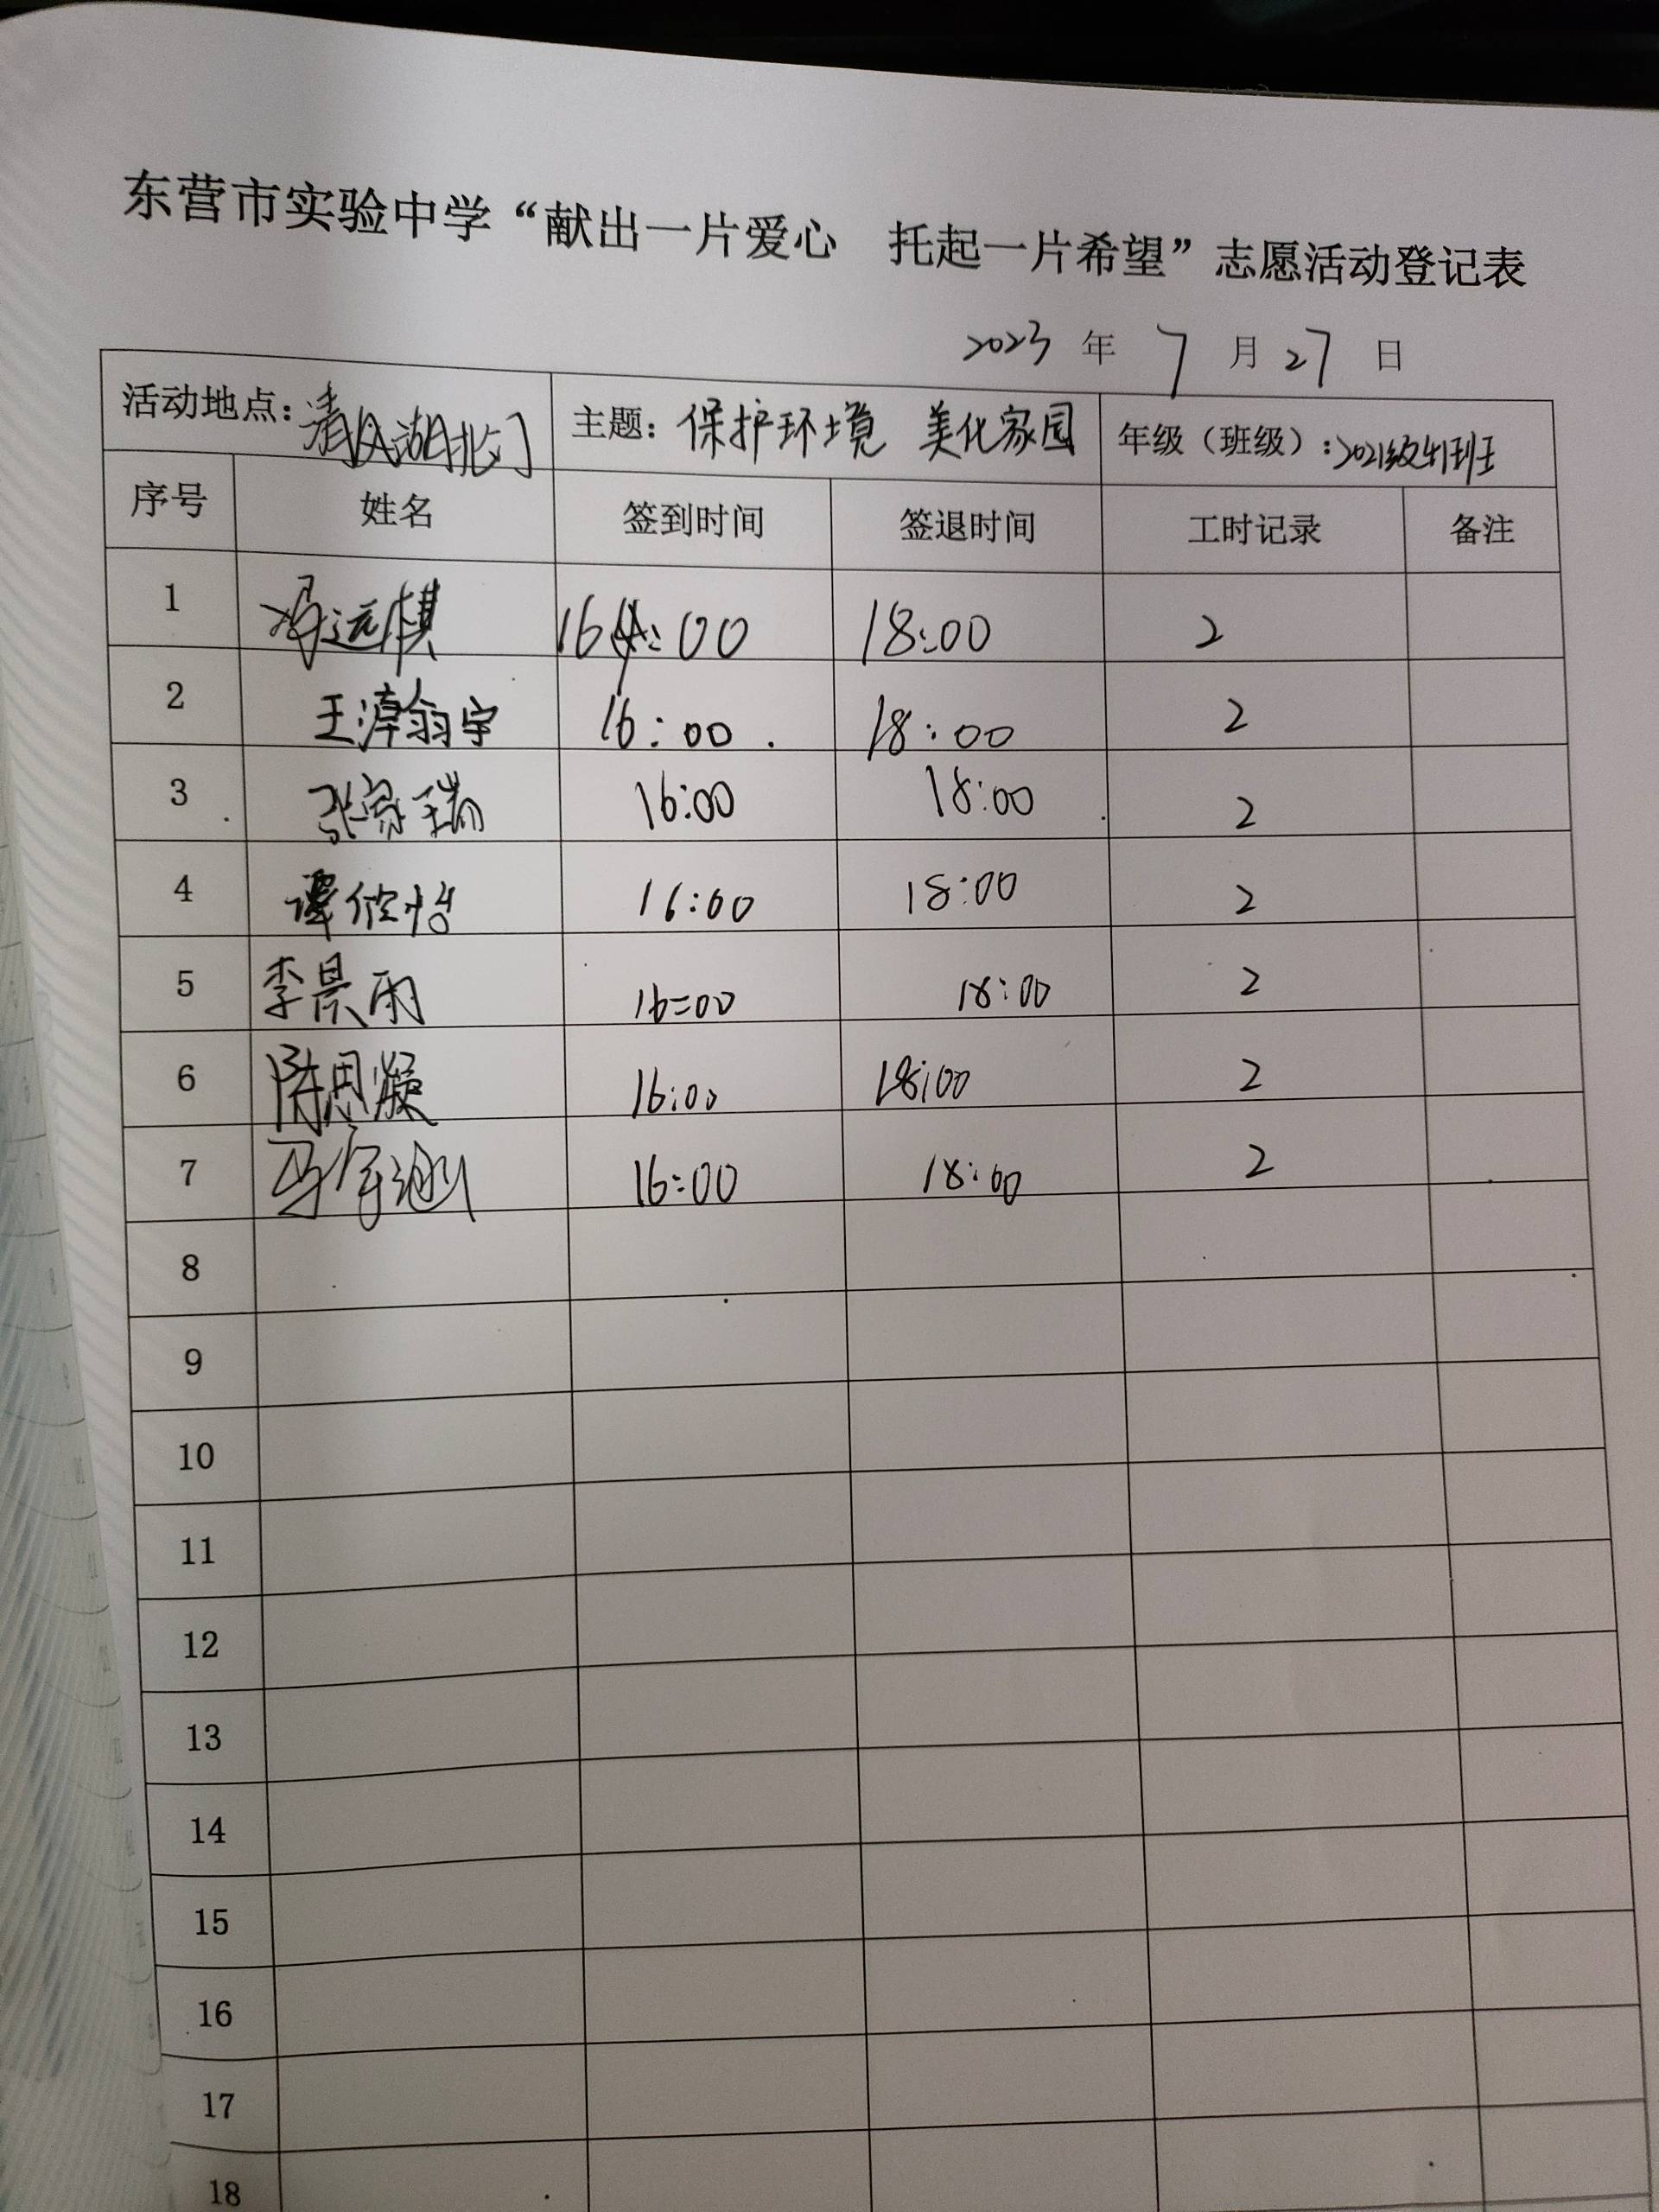 东营市实验中学“献出一片爱心 托起一片希望”志愿活动登记表
2023 年 7 月 27 日
活动地点：清风湖北门 主题：保护环境 美化家园 年级（班级）：2021级
序号 姓名 签到时间 签退时间 工时记录 备注
1 远棋 16:00 18:00 2
2 王淖翰宇 16:00 18:00 2
3 张家瑞 16:00 18:00 2
4 谭欣怡 16:00 18:00 2
5 李晨雨 16:00 18:00 2
6 陈思凝 16:00 18:00 2
7 马宇涵 16:00 18:00 2
8
9
10
11
12
13
14
15
16
17
18